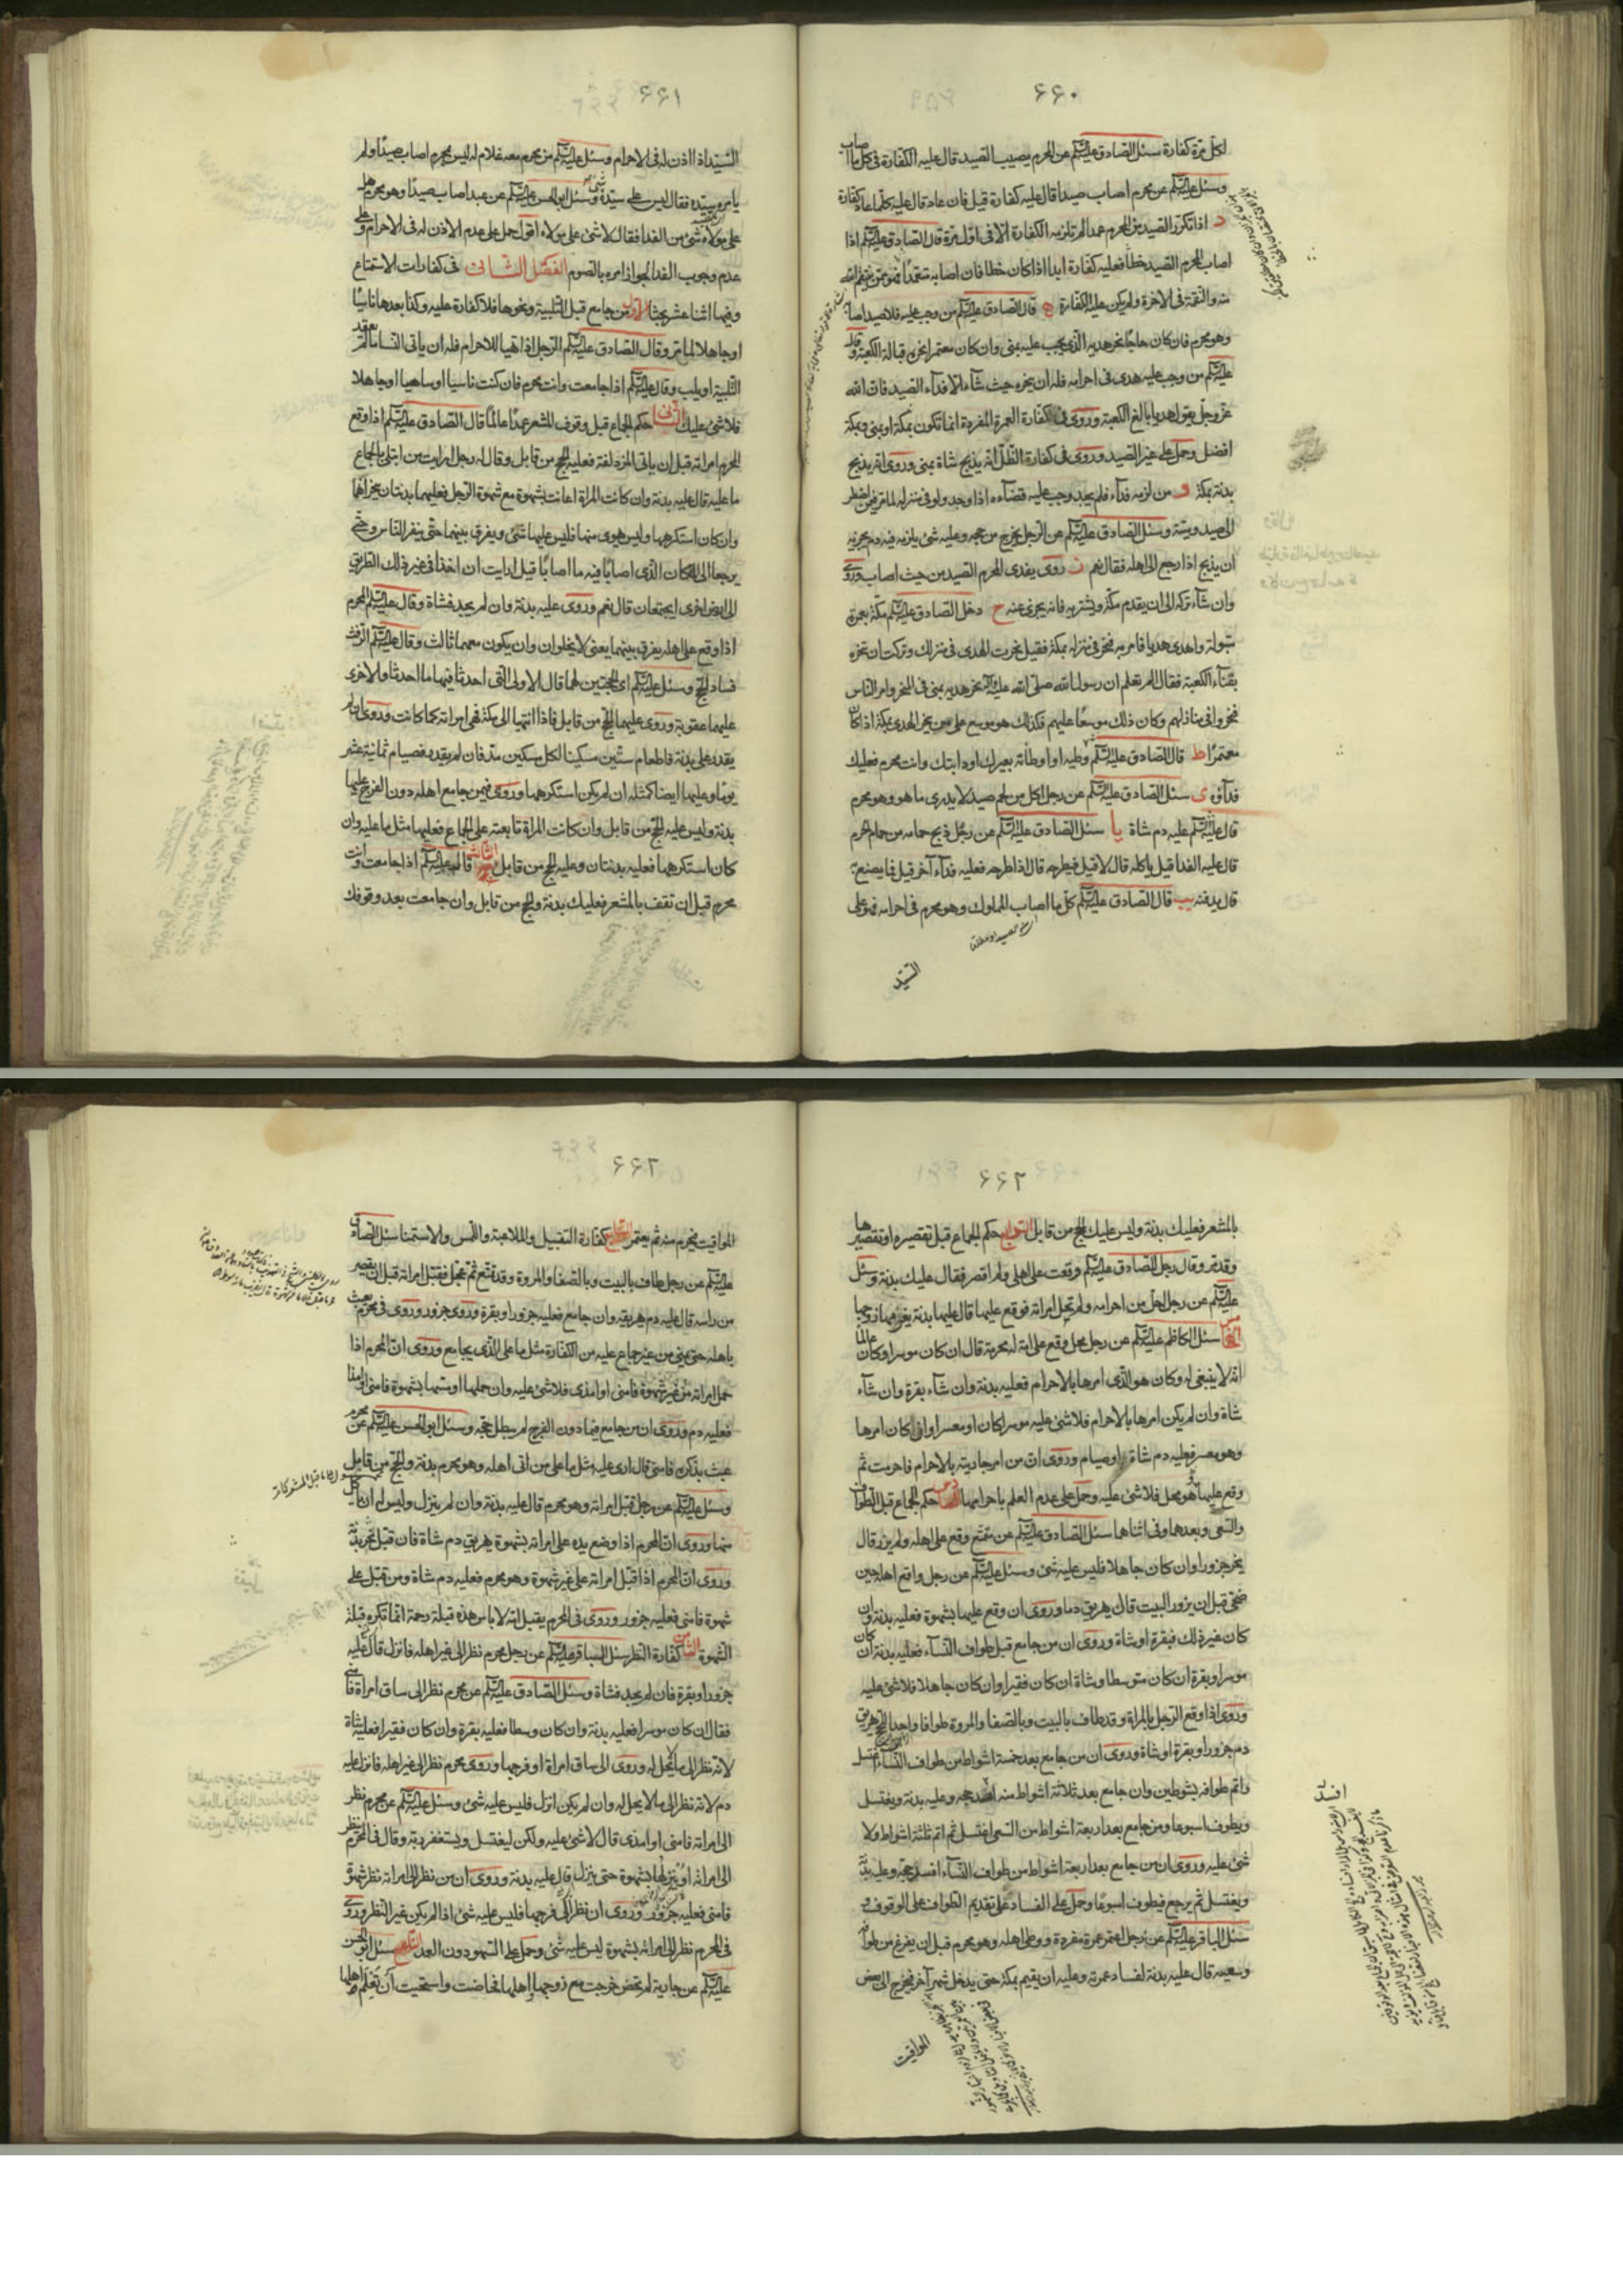 ٦٦٠
لكل مرة كفارة سئل الصادق عليه السلم عن المحرم يصيب الصيد قال عليه الكفارة في كل ما اصاب
وسئل عليه السلم عن محرم اصاب صيدا قال عليه كفارة قيل فان عاد قال عليه كلما عاد كفارة
د اذا تكرر الصيد من المحرم عمدا لم تلزمه الكفارة الا في اول مرة قال الصادق عليه السلم اذا
اصاب المحرم الصيد خطأ فعليه كفارة ابدا اذا كان خطا فان اصابه متعمدا فهو ممن ينتقم الله
منه والنقمة في الاخرة ولم يكن عليه الكفارة ه قال الصادق عليه السلم من وجب عليه فداء صيد اصابه
وهو محرم فان كان حاجا نحر هديه الذي يجب عليه بمنى وان كان معتمرا نحره قبالة الكعبة وقال
عليه السلم من وجب عليه هدى في احرامه فله ان ينحره حيث شاء الا فدآء الصيد فان الله
عز وجل يقول هديا بالغ الكعبة وروى في كفارة العمرة المفردة انها تكون بمكة او بمنى وبمكة
افضل وحمل على غير الصيد وروى في كفارة الظل انه يذبح شاة بمنى وروى انه يذبح
بدنة بمكة و من لزمه فدآء فلم يجد وجب عليه قضآءه اذا وجد ولو في منزله لما مر فيمن اضطر
الى صيد وميتة وسئل الصادق عليه السلم عن الرجل يخرج من حجه وعليه شئ يلزمه فيه دم يجزيه
ان يذبح اذا رجع الى اهله فقال نعم ز روى يفدى المحرم الصيد من حيث اصاب وروى
وان شآء تركه الى ان يقدم مكة ويشتريه فانه يجزى عنه ح دخل الصادق عليه السلم مكة بعمرة
مبتولة واهدى هديا فامر به فنحر في منزله بمكة فقيل نحرت الهدى في منزلك وتركت ان تنحره
بفناء الكعبة فقال الم تعلم ان رسول الله صلى الله عليه وآله نحر هديه بمنى في المنحر وامر الناس
فنحروا في منازلهم وكان ذلك موسعا عليهم فكذلك هو موسع على من ينحر الهدى بمكة اذا كان
معتمرا ط قال الصادق عليه السلم ما وطئه او اوطأته بعيرك او دابتك وانت محرم فعليك
فدآؤه ى سئل الصادق عليه السلم عن رجل اكل من لحم صيد لا يدرى ما هو وهو محرم
قال عليه السلم عليه دم شاة يا سئل الصادق عليه السلم عن رجل ذبح حمامة من حمام الحرم
قال عليه الفدا قيل ياكله قال لا قيل فيطرحه قال اذا طرحه فعليه فدآء آخر قيل فما يصنع به
قال يدفنه يب قال الصادق عليه السلم كل ما اصاب المملوك وهو محرم في احرامه فهو على
السيد
٦٦١
السيد اذا اذن له في الاحرام وسئل عليه السلم عن محرم معه غلام له ليس بمحرم اصاب صيدا ولم
يامره سيده فقال ليس على سيده شئ وسئل ابو الحسن عليه السلم عن عبد اصاب صيدا وهو محرم هل
على مولاه شئ من الفدا فقال لا شئ على مولاه اقول حمل على عدم الاذن له في الاحرام وعلى
عدم وجوب الفدا لجواز امره بالصوم الفصل الثانى في كفارات الاستمتاع
وفيها اثنا عشر بحثا الاول من جامع قبل التلبية ونحوها فلا كفارة عليه وكذا بعدها ناسيا
او جاهلا لما مر وقال الصادق عليه السلم الرجل اذا تهيا للاحرام فله ان ياتى النسا ما لم يعقد
التلبية او يلب وقال عليه السلم اذا جامعت وانت محرم فان كنت ناسيا او ساهيا او جاهلا
فلا شئ عليك الثانى حكم الجماع قبل وقوف المشعر عمدا عالما قال الصادق عليه السلم اذا وقع
المحرم امراته قبل ان ياتى المزدلفة فعليه الحج من قابل وقال له رجل ارايت من ابتلى بالجماع
ما عليه قال عليه بدنة وان كانت المراة اعانت بشهوة مع شهوة الرجل فعليهما بدنتان ينحرانهما
وان كان استكرهها وليس بهوى منها فليس عليها شئ ويفرق بينهما حتى ينفر الناس وحتى
يرجعا الى المكان الذى اصابا فيه ما اصابا قيل ارايت ان اخذا في غير ذلك الطريق
الى ارض اخرى ايجتمعان قال نعم وروى عليه بدنة وان لم يجد فشاة وقال عليه السلم المحرم
اذا وقع على اهله يفرق بينهما يعنى لا يخلوان وان يكون معهما ثالث وقال عليه السلم الرفث
فساد الحج وسئل عليه السلم اى الحجتين لهما قال الاولى التى احدثا فيها ما احدثا والاخرى
عليهما عقوبة وروى عليهما الحج من قابل فاذا انتهيا الى مكة فهى امراته كما كانت وروى ان لم
يقدر على بدنة فاطعام ستين مسكينا لكل مسكين مد فان لم يقدر فصيام ثمانية عشر
يوما وعليها ايضا كمثله ان لم يكن استكرهها وروى فيمن جامع اهله دون الفرج عليه
بدنة وليس عليه الحج من قابل وان كانت المراة تابعته على الجماع فعليها مثل ما عليه وان
كان استكرهها فعليه بدنتان وعليه الحج من قابل الثالث قال عليه السلم اذا جامعت وانت
محرم قبل ان تقف بالمشعر فعليك بدنة والحج من قابل وان جامعت بعد وقوفك
٦٦٢
بالمشعر فعليك بدنة وليس عليك الحج من قابل الرابع حكم الجماع قبل تقصيره او تقصيرها
وقد مر وقال رجل الصادق عليه السلم وقعت على اهلى ولم اقصر فقال عليك بدنة وسئل
عليه السلم عن رجل احل من احرامه ولم تحل امراته فوقع عليها قال عليها بدنة يغرمها زوجها
الخامس سئل الكاظم عليه السلم عن رجل محل وقع على امة له محرمة قال ان كان موسرا وكان عالما
انه لا ينبغى له وكان هو الذى امرها بالاحرام فعليه بدنة وان شاء بقرة وان شآء
شاة وان لم يكن امرها بالاحرام فلا شئ عليه موسرا كان او معسرا وان كان امرها
وهو معسر فعليه دم شاة او صيام وروى ان من امر جاريته بالاحرام فاحرمت ثم
وقع عليها وهو محل فلا شئ عليه وحمل على عدم العلم باحرامها السادس حكم الجماع قبل الطواف
والسعى وبعدهما وفي اثنائهما سئل الصادق عليه السلم عن متمتع وقع على اهله ولم يزر قال
ينحر جزورا وان كان جاهلا فليس عليه شئ وسئل عليه السلم عن رجل واقع اهله حين
ضحى قبل ان يزور البيت قال يهريق دما وروى ان وقع عليها بشهوة فعليه بدنة وان
كان غير ذلك فبقرة او شاة وروى ان من جامع قبل طواف النسآء فعليه بدنة ان كان
موسرا وبقرة ان كان متوسطا وشاة ان كان فقيرا وان كان جاهلا فلا شئ عليه
وروى اذا وقع الرجل بالمراة وقد طاف بالبيت وبالصفا والمروة طوافا واحدا للحج يهريق
دم جزور او بقرة او شاة وروى ان من جامع بعد خمسة اشواط من طواف النسآء اغتسل
واتم طوافه بشوطين وان جامع بعد ثلاثة اشواط منه افسد حجه وعليه بدنة ويغتسل
ويطوف اسبوعا ومن جامع بعد اربعة اشواط من السعى اغتسل ثم اتم ثلثة اشواط ولا
شئ عليه وروى ان من جامع بعد اربعة اشواط من طواف النسآء افسد حجه وعليه بدنة
ويغتسل ثم يرجع فيطوف اسبوعا وحمل على الفساد على تقديم الطواف على الوقوف و
سئل الباقر عليه السلم عن رجل اعتمر عمرة مفردة ووطى اهله وهو محرم قبل ان يفرغ من طوافه
وسعيه قال عليه بدنة لفساد عمرته وعليه ان يقيم بمكة حتى يدخل شهر آخر فيخرج الى بعض
المواقيت
٦٦٢
المواقيت فيحرم منه ثم يعتمر السابع كفارة التقبيل والملاعبة واللمس والاستمنا سئل الصادق
عليه السلم عن رجل طاف بالبيت وبالصفا والمروة وقد تمتع ثم عجل فقبل امراته قبل ان يقصر
من راسه قال عليه دم يهريقه وان جامع فعليه جزور او بقرة وروى جزور وروى في محرم يعبث
باهله حتى يمنى من غير جماع عليه من الكفارة مثل ما على الذى يجامع وروى ان المحرم اذا
حمل امراته من غير شهوة فامنى او امذى فلا شئ عليه وان حملها او مسها بشهوة فامنى او امذا
فعليه دم وروى ان من جامع فيما دون الفرج لم يبطل حجه وسئل ابو الحسن عليه السلم عن محرم
عبث بذكره فامنى قال ارى عليه مثل ما على من اتى اهله وهو محرم بدنة والحج من قابل
وسئل عليه السلم عن رجل قبل امراته وهو محرم قال عليه بدنة وان لم ينزل وليس له ان ياكل
منها وروى ان المحرم اذا وضع يده على امراته بشهوة يهريق دم شاة فان قبل نحر بدنة
وروى ان المحرم اذا قبل امراته على غير شهوة وهو محرم فعليه دم شاة ومن قبل على
شهوة فامنى فعليه جزور وروى في المحرم يقبل امه لا باس هذه قبلة رحمة انما تكره قبلة
الشهوة الثامن كفارة النظر سئل الباقر عليه السلم عن رجل محرم نظر الى غير اهله فانزل قال عليه
جزور او بقرة فان لم يجد فشاة وسئل الصادق عليه السلم عن محرم نظر الى ساق امراة فامنى
فقال ان كان موسرا فعليه بدنة وان كان وسطا فعليه بقرة وان كان فقيرا فعليه شاة
لانه نظر الى ما لا يحل له وروى الى ساق امراة او فرجها وروى محرم نظر الى غير اهله فانزل عليه
دم لانه نظر الى ما لا يحل له وان لم يكن انزل فليس عليه شئ وسئل عليه السلم عن محرم نظر
الى امراته فامنى او امذى قال لا شئ عليه ولكن ليغتسل ويستغفر ربه وقال في المحرم ينظر
الى امراته او ينزلها بشهوة حتى ينزل قال عليه بدنة وروى ان من نظر الى امراته نظر شهوة
فامنى فعليه جزور وروى ان نظر الى فرجها فليس عليه شئ اذا لم يكن غير النظر وروى
في المحرم نظر الى امراته بشهوة ليس عليه شئ وحمل على السهو دون العمد التاسع سئل ابو الحسن
عليه السلم عن جارية لم تحض خرجت مع زوجها واهلها فحاضت واستحيت ان تعلم اهلها